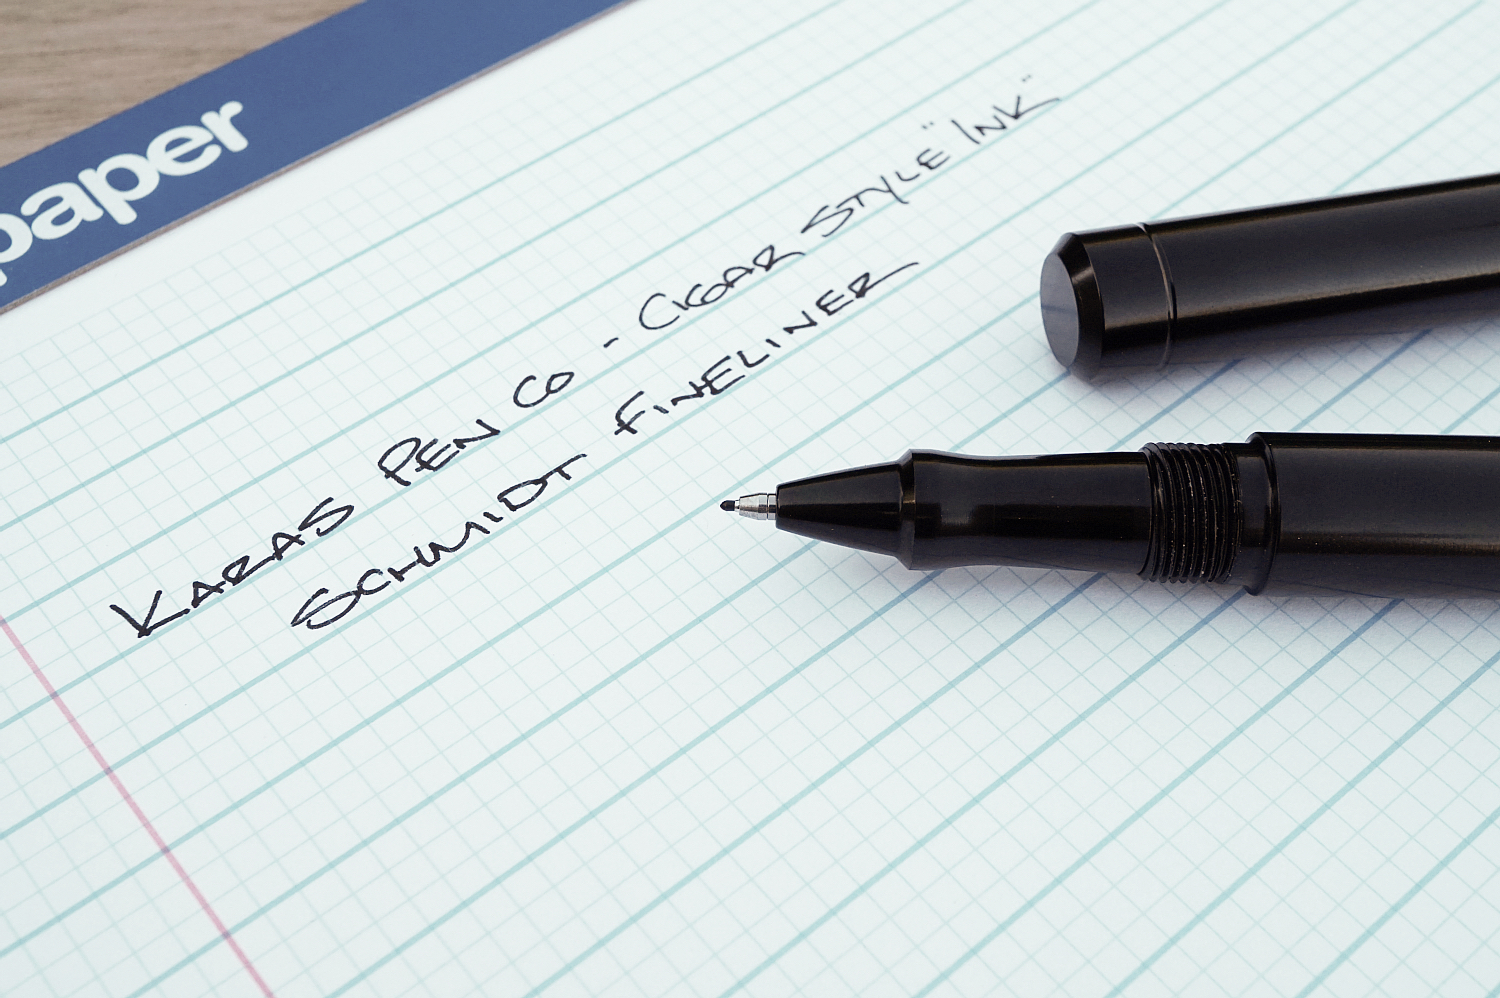 paper
KARAS PEN CO - CIGAR STYLE "INK"
SCHMIDT FINELINER